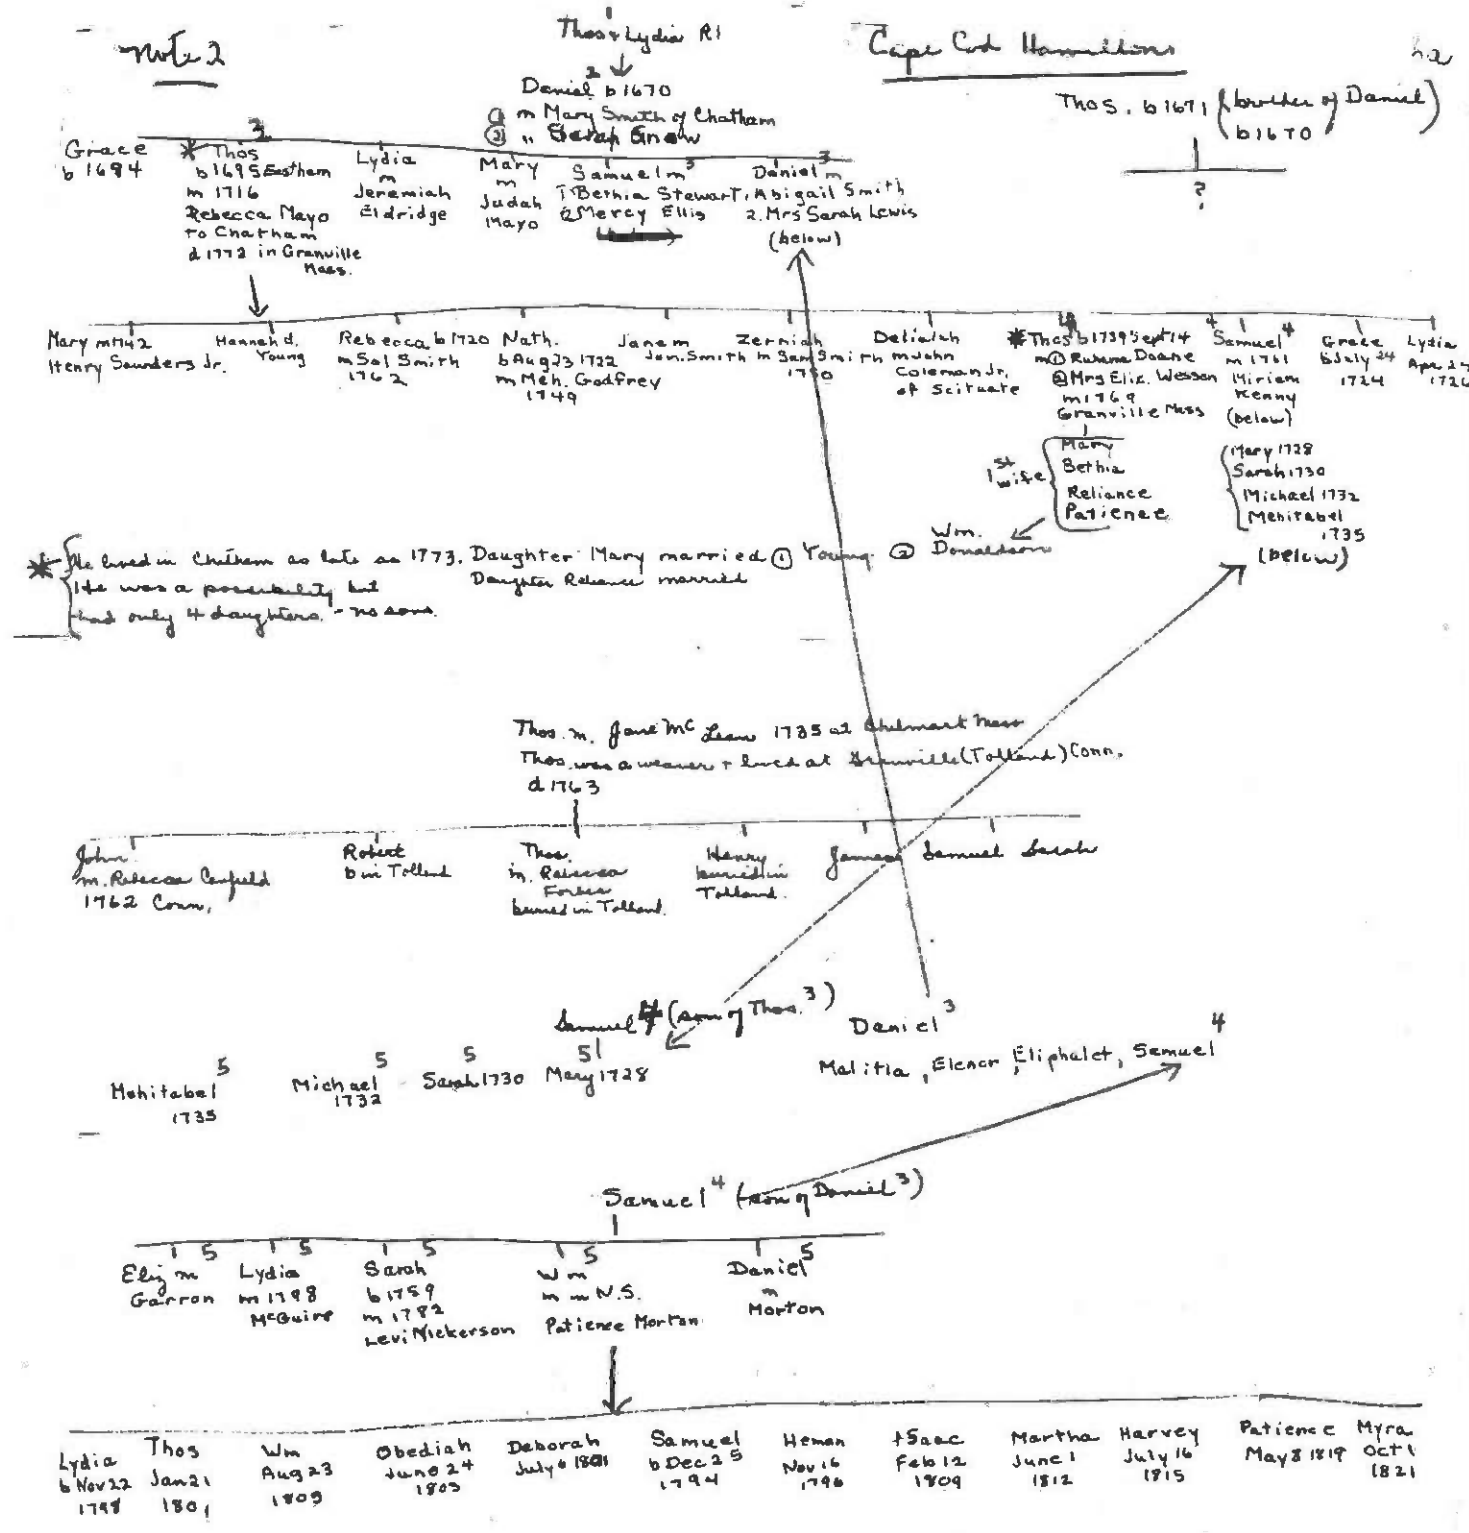 Note 2
Thos + Lydia RI
Cape Cod Hamiltons
2
Daniel b 1670
① m Mary Smith of Chatham
② "
Thos. b 1671 (brother of Daniel
b 1670)
?
Grace
b 1694
3
* Thos
b 1695 Eastham
m 1716
Rebecca Mayo
to Chatham
d 1772 in Granville
Mass.
Lydia
m
Jeremiah
Eldridge
Mary
m
Judah
Mayo
Samuel m 3
1 Bethia Stewart
2 Mercy Ellis
Daniel 3 m
1. Abigail Smith
2. Mrs Sarah Lewis
(below)
Mary m 1742
Henry Saunders Jr.
Hannah d.
Young
Rebecca b 1720
m Sol Smith
1762
Nath.
b Aug 23 1722
m Meh. Godfrey
1749
Jane m
Jon. Smith
Zerniah
m Sam Smith
1750
Deliah
m John
Coleman Jr.
of Scituate
* Thos b 1739 Sept 14
m ① Doane
② Mrs Eliz. Wesson
m 1769
Granville Mass
4
Samuel 4
m 1761
Miriam
Kenny
(below)
Grace
b July 24
1724
Lydia
Apr 27
1726
1st wife
Mary
Bethia
Reliance
Patience
Mary 1728
Sarah 1730
Michael 1732
Mehitabel
1735
(below)
* He lived in Chatham as late as 1773. Daughter Mary married ① Young ② Wm. Donaldson
He was a possibility but Daughter Reliance married
had only 4 daughters. - no sons.
Thos. m. Jane McLean 1735 at Mass
Thos. was a weaver + lived at Granville (Tolland) Conn.
d 1763
John
m. Rebecca Canfield
1762 Conn.
Robert
b in Tolland
Thos.
m. Rebecca
Forbes
buried in Tolland.
Henry
buried in
Tolland.
James
Samuel
Sarah
Samuel 4 (son of Thos. 3)
Daniel 3
Mehitabel 5
1735
Michael 5
1732
5
Sarah 1730
5
Mary 1728
Malitia, Elenor, Eliphalet, Samuel 4
Samuel 4 (son of Daniel 3)
5
Eliz m
Garron
5
Lydia
m 1798
McGuire
5
Sarah
b 1759
m 1782
Levi Nickerson
5
Wm
m in N.S.
Patience Morton
Daniel 5
m
Morton
Lydia
b Nov 22
1798
Thos
Jan 21
1801
Wm
Aug 23
Obediah
June 24
1803
Deborah
July 6
Samuel
b Dec 25
1794
Heman
Nov 16
1796
Isaac
Feb 12
1809
Martha
June 1
1812
Harvey
July 16
1815
Patience
May 8 1819
Myra
Oct 1
1821